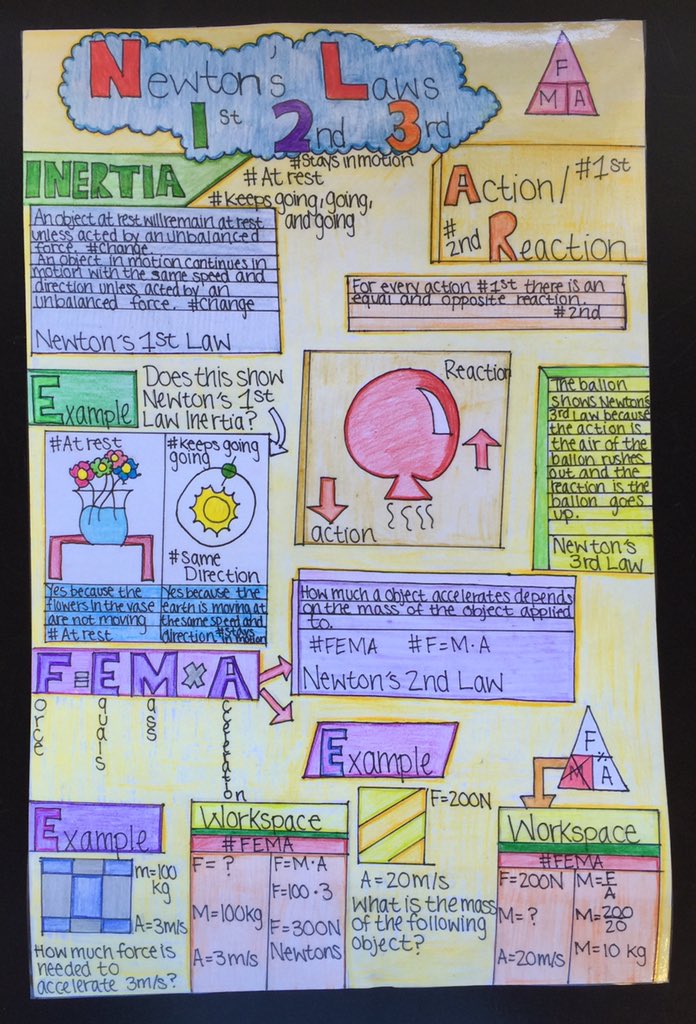 Newton's Laws
1st 2nd 3rd
F
M A
INERTIA
#stays in motion
#At rest
#keeps going, going,
and going
Action/ #1st
#2nd Reaction
An object at rest will remain at rest
unless acted by an unbalanced
force. #Change
An object in motion continues in
motion with the same speed and
direction unless acted by an
unbalanced force. #Change
Newton's 1st Law
For every action #1st there is an
equal and opposite reaction.
#2nd
Example
Does this show
Newton's 1st
Law Inertia?
#At rest
#keeps going
going
#same
Direction
Yes because the
flowers in the vase
are not moving
#At rest
Yes because the
earth is moving at
the same speed and
direction #stays
in motion
Reaction
action
The ballon
shows Newton's
3rd Law because
the action is
the air of the
ballon rushes
out and the
reaction is the
ballon goes
up.
Newton's
3rd Law
How much a object accelerates depends
on the mass of the object applied
to.
#FEMA #F=M·A
Newton's 2nd Law
F=EM×A
orce
quals
ass
cceleration
Example
F
M ÷ A
Example
m=100
kg
A=3m/s
How much force is
needed to
accelerate 3m/s?
Workspace
#FEMA
F= ?
M=100kg
A=3m/s
F=M·A
F=100·3
F=300N
Newtons
F=200N
A=20m/s
What is the mass
of the following
object?
Workspace
#FEMA
F=200N
M= ?
A=20m/s
M=F/A
M=200/20
M=10 kg